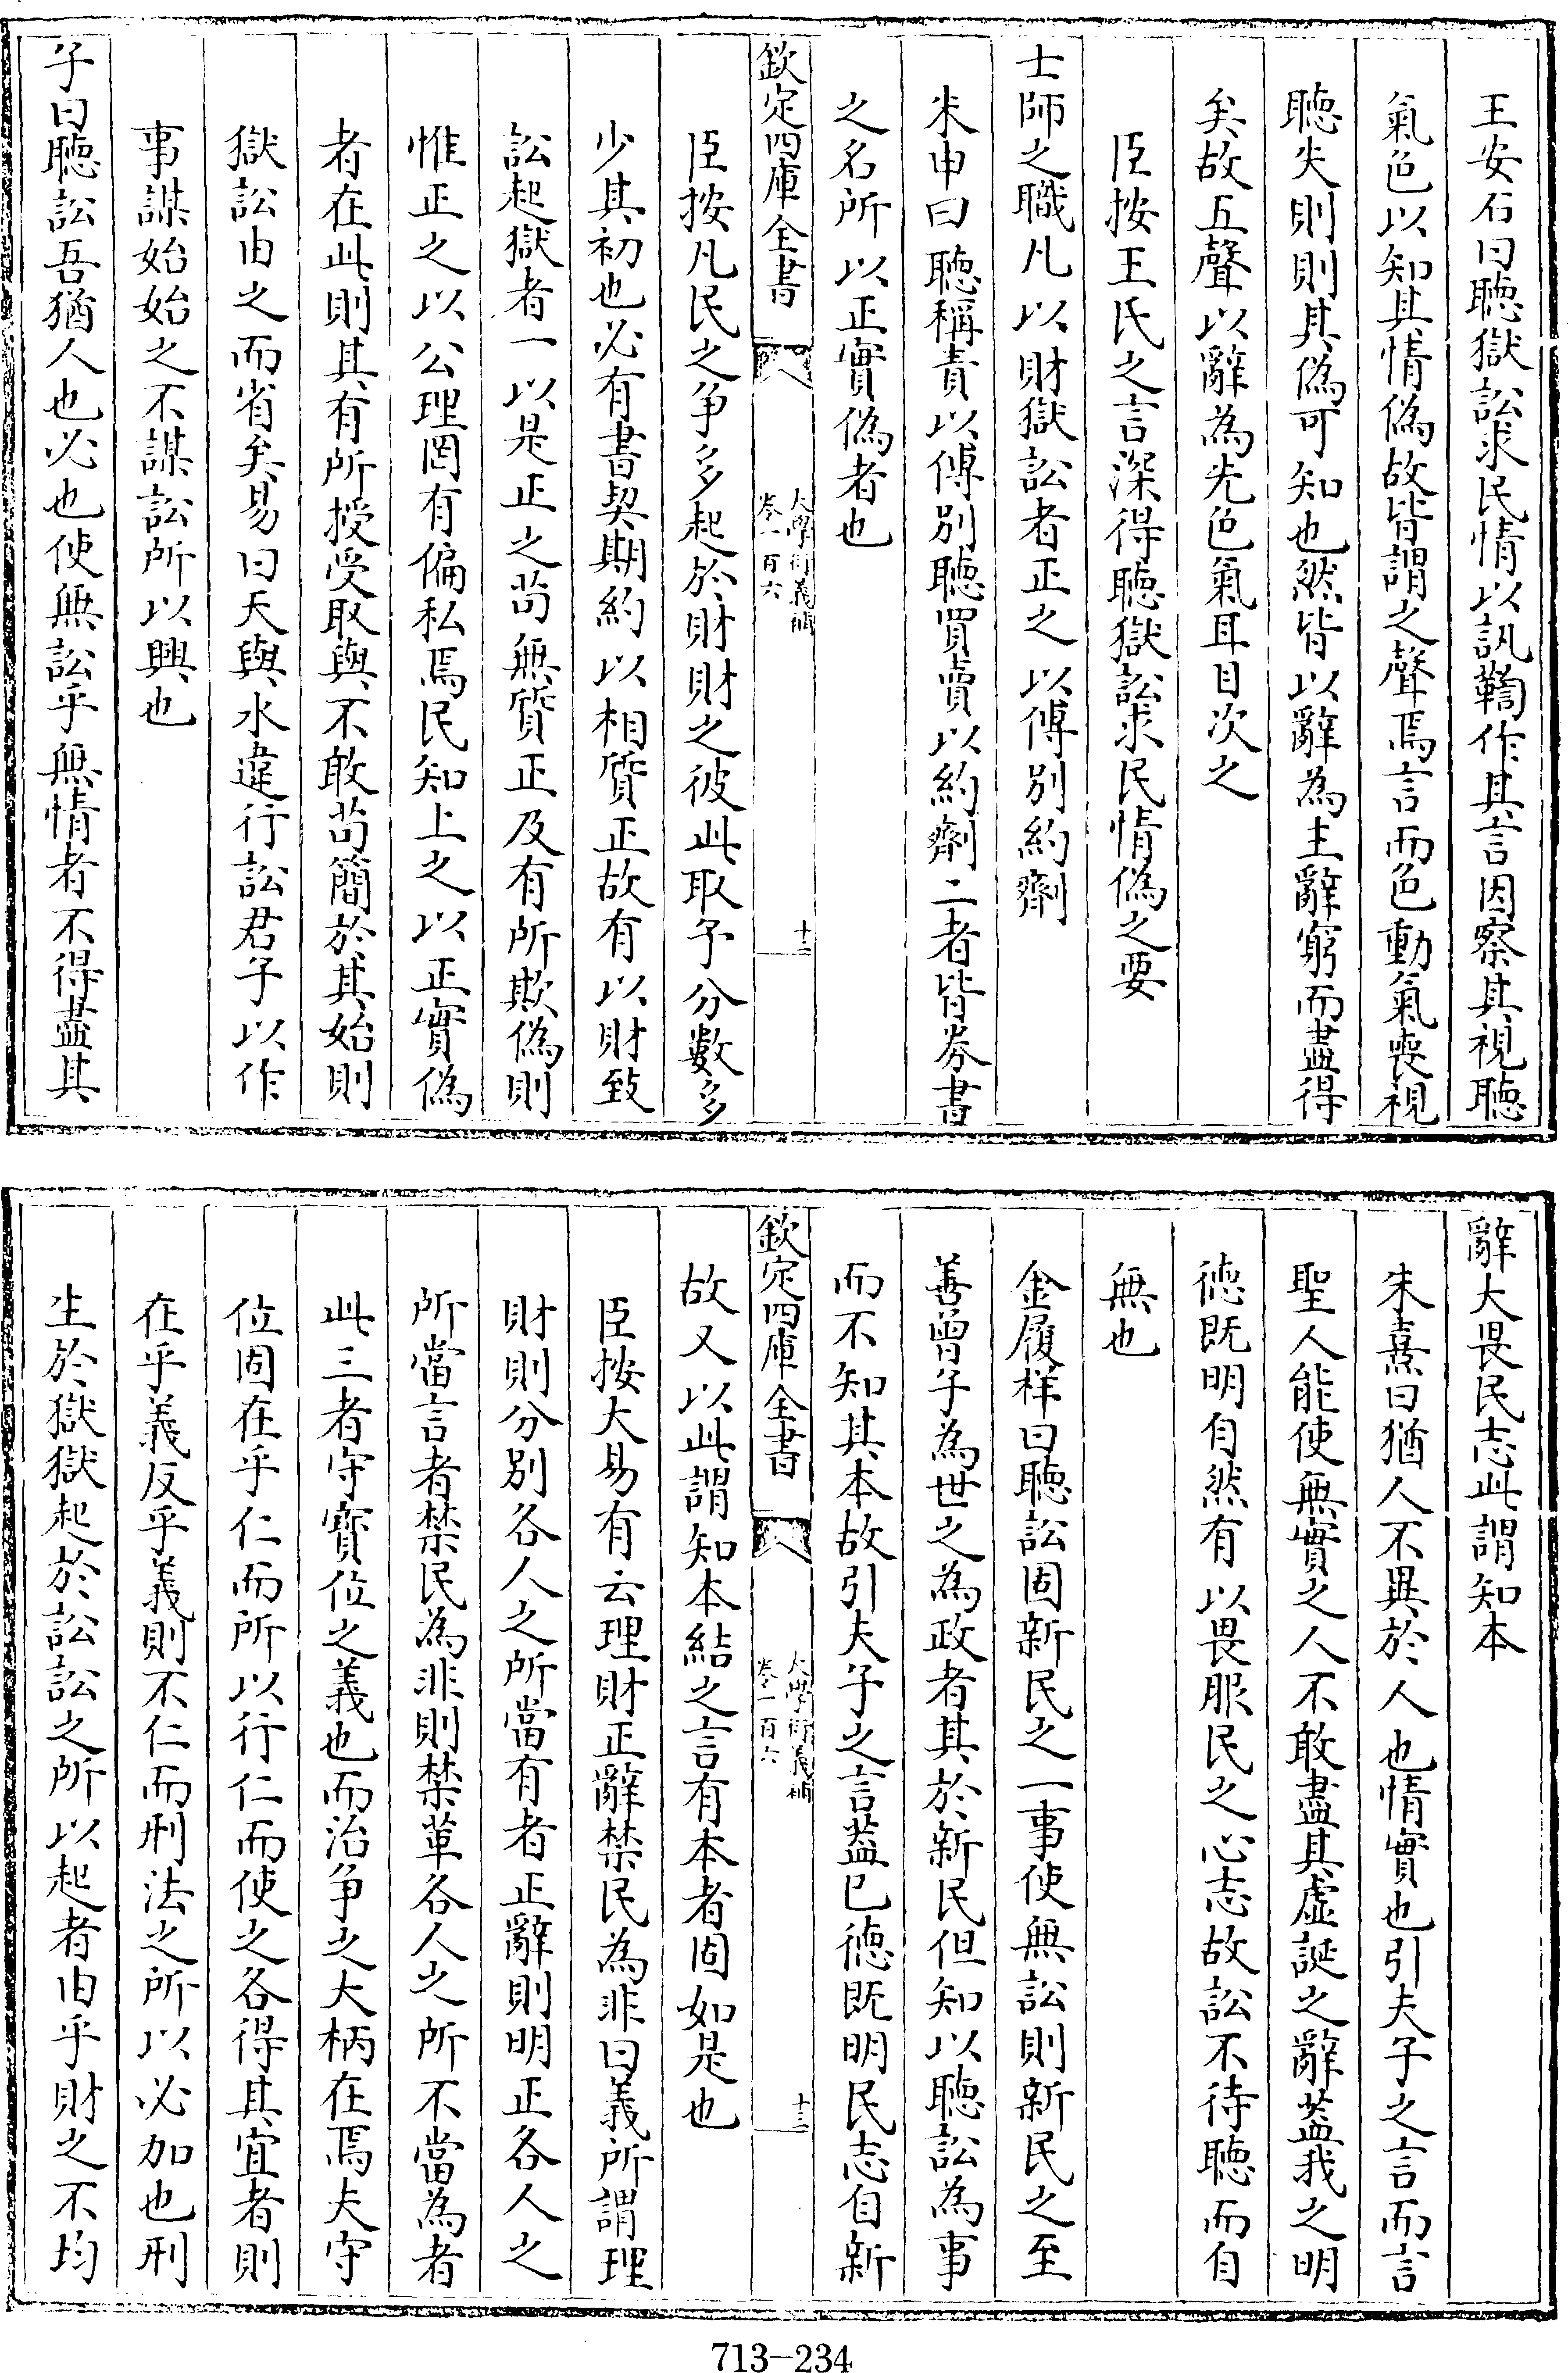 王安石曰聽獄訟求民情以訊鞫作其言因察其視聽
氣色以知其情偽故皆謂之聲焉言而色動氣喪視
聽失則則其偽可知也然皆以辭為主辭窮而盡得
矣故五聲以辭為先色氣耳目次之
臣按王氏之言深得聽獄訟求民情偽之要
士師之職凡以財獄訟者正之以傅別約劑
朱申曰聽稱責以傅別聽買賣以約劑二者皆券書
之名所以正實偽者也
欽定四庫全書
大學衍義補
卷一百六
十二
臣按凡民之争多起於財財之彼此取予分數多
少其初也必有書契期約以相質正故有以財致
訟起獄者一以是正之苟無質正及有所欺偽則
惟正之以公理罔有偏私焉民知上之以正實偽
者在此則其有所授受取與不敢苟簡於其始則
獄訟由之而省矣易曰天與水違行訟君子以作
事謀始始之不謀訟所以興也
子曰聽訟吾猶人也必也使無訟乎無情者不得盡其
辭大畏民志此謂知本
朱熹曰猶人不異於人也情實也引夫子之言而言
聖人能使無實之人不敢盡其虛誕之辭蓋我之明
德既明自然有以畏服民之心志故訟不待聽而自
無也
金履祥曰聽訟固新民之一事使無訟則新民之至
善曾子為世之為政者其於新民但知以聽訟為事
而不知其本故引夫子之言蓋已德既明民志自新
欽定四庫全書
大學衍義補
卷一百六
十三
故又以此謂知本結之言有本者固如是也
臣按大易有云理財正辭禁民為非曰義所謂理
財則分別各人之所當有者正辭則明正各人之
所當言者禁民為非則禁革各人之所不當為者
此三者守寳位之義也而治争之大柄在焉夫守
位固在乎仁而所以行仁而使之各得其宜者則
在乎義反乎義則不仁而刑法之所以必加也刑
生於獄獄起於訟訟之所以起者由乎財之不均
713-234